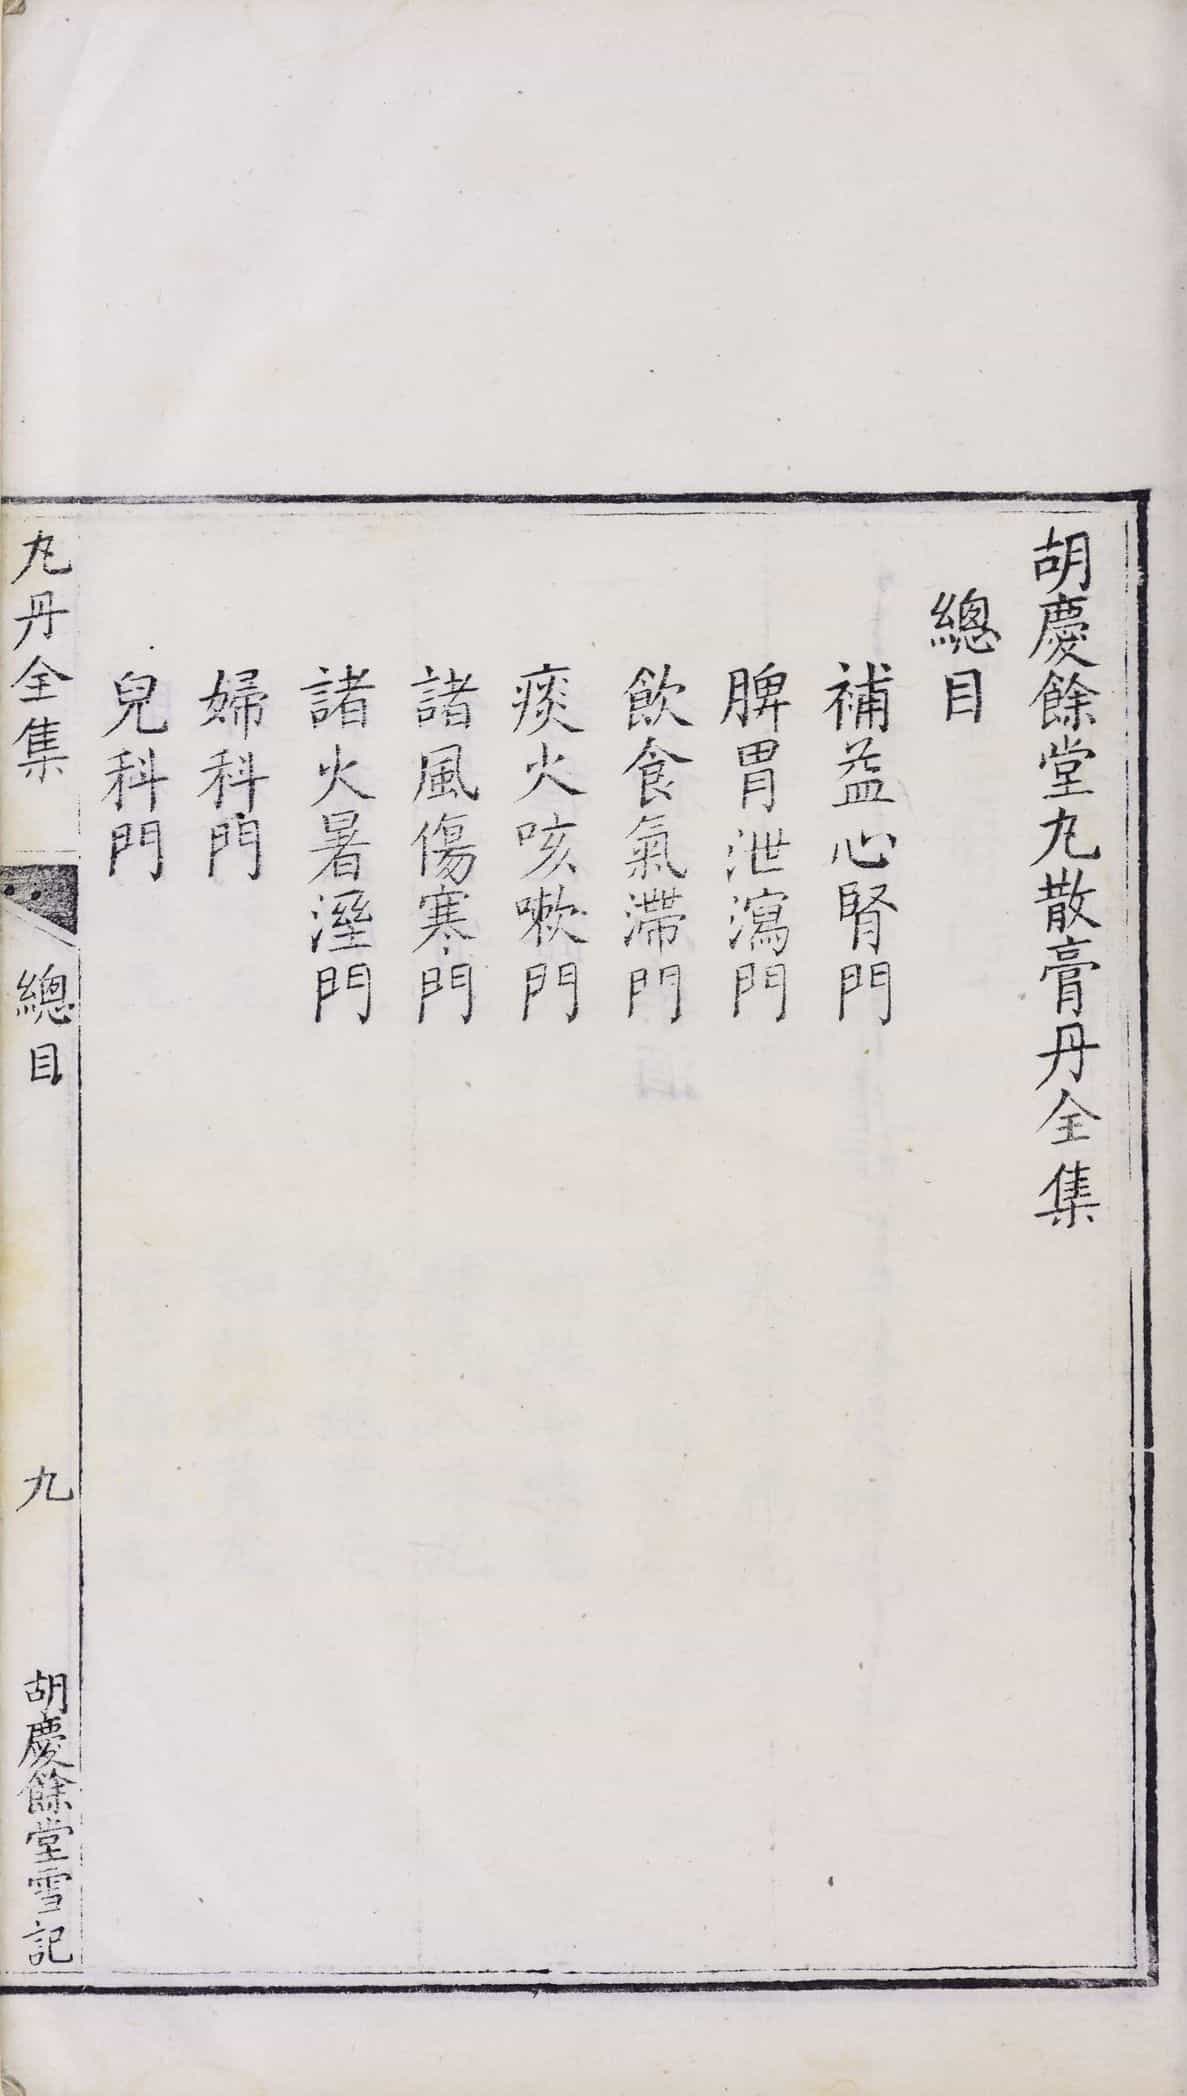 胡慶餘堂丸散膏丹全集
總目
補益心腎門
脾胃泄瀉門
飲食氣滯門
痰火咳嗽門
諸風傷寒門
諸火暑溼門
婦科門
兒科門
丸丹全集
總目
九
胡慶餘堂雪記